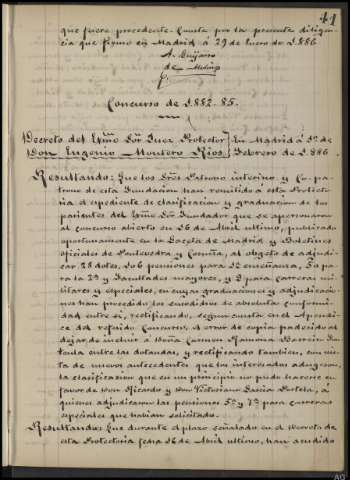 41
que fuere procedente. Consta por la presente diligen-
cia que firmo en Madrid á 29 de Enero de 1.886
A. Quijano
de
Concurso de 1.882-85.
Decreto del Exmo Sor Juez Protector
Don Eugenio Montero Rios,
En Madrid á 1º de
Febrero de 1.886
Resultando: Que los Sres Patrono interino y Co-pa-
trono de esta Fundacion han remitido á esta Protecto-
ria el expediente de clasificacion y graduacion de los
parientes del Exmo Sor Fundador que se apersonaron
al concurso abierto en 26 de Abril ultimo, publicado
oportunamente en la Gaceta de Madrid y Boletines
oficiales de Pontevedra y Coruña, al objeto de adjudi-
car 28 dotes, 206 pensiones para 2ª enseñanza, 50 pa-
ra la 2ª y Facultades mayores, y 8 para carreras mi-
litares y especiales, en cuyas graduaciones y adjudicacio-
nes han procedido los susodichos de absoluta conformi-
dad entre si, rectificando, segun consta en el Apendi-
ce del referido Concurso, el error de copia padecido al
dejar de incluir á Doña Carmen Ramona Barreiro
entre las dotandas, y rectificando tambien, con vis-
ta de nuevos antecedentes que los interesados adujeron,
la clasificacion que en un principio no pudo hacerse en
favor de Don Ricardo y Don Victoriano Garcia Portela, á
quienes adjudicaron las pensiones 5ª y 7ª para carreras
especiales que habian solicitado.
Resultando: Que durante el plazo señalado en el Decreto de
esta Protectoria fecha 26 de Abril ultimo, han acudido